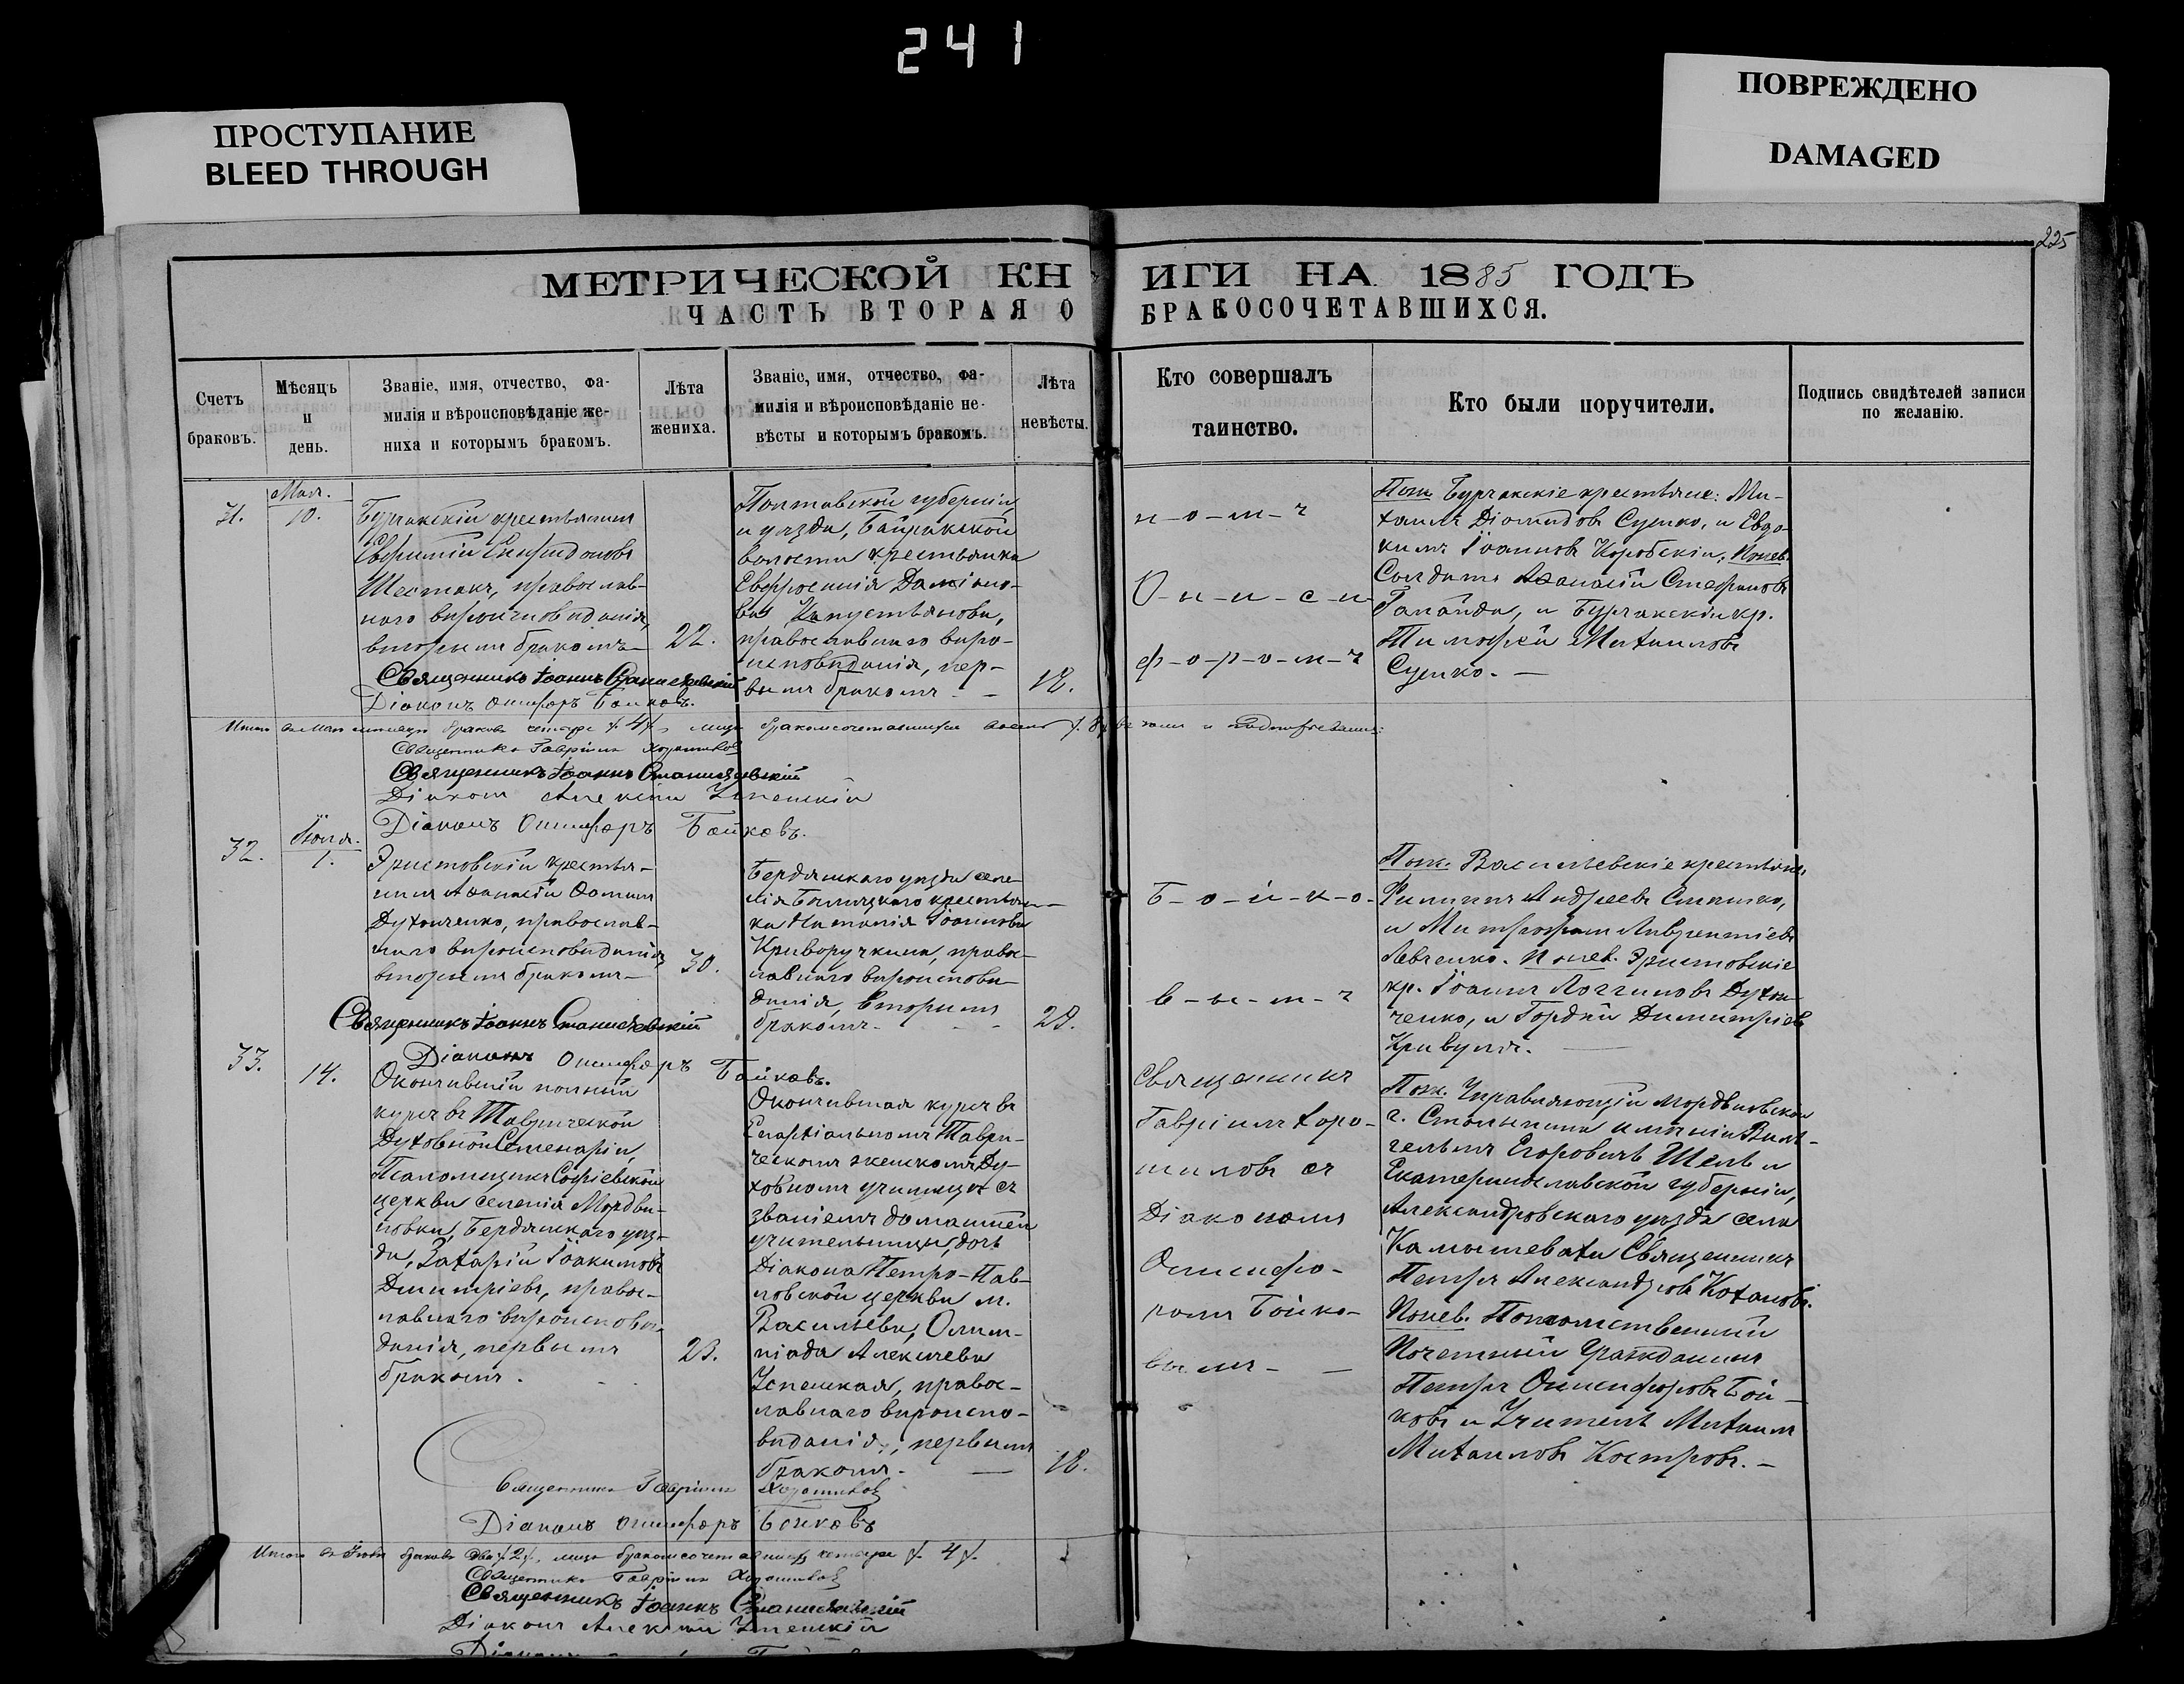 241
ПРОСТУПАНИЕ
BLEED THROUGH
ПОВРЕЖДЕНО
DAMAGED
225
МЕТРИЧЕСКОЙ КН
ЧАСТЬ ВТОРАЯ О
ИГИ НА 1885 ГОДЪ
БРАКОСОЧЕТАВШИХСЯ.
Счетъ
браковъ.
Мѣсяцъ
и
день.
Званіе, имя, отчество, фа-
милія и вѣроисповѣданіе же-
ниха и которымъ бракомъ.
Лѣта
жениха.
Званіе, имя, отчество, фа-
милія и вѣроисповѣданіе не-
вѣсты и которымъ бракомъ.
Лѣта
невѣсты.
Кто совершалъ
таинство.
Кто были поручители.
Подпись свидѣтелей записи
по желанію.
31.
Мая.
10.
Бурчакскій крестьянинъ
Евфимій Спиридоновъ
Шестакъ, православ-
наго вѣроисповѣданія,
вторымъ бракомъ
22.
Полтавской губерніи
и уѣзда, Байракской
волости крестьянка
Евфросинія Даміано-
ва Капустьянова,
православнаго вѣро-
исповѣданія, пер-
вымъ бракомъ -
18.
н-о-м-ъ
О-н-и-с-и-
ф-о-р-о-м-ъ
Пож. Бурчакскіе крестьяне: Ми-
хаилъ Діомидовъ Сушко, и Евдо-
кимъ Іоанновъ Коробскій; По нев.
Солдатъ Аѳанасій Стефановъ
Гапайда, и Бурчакскій кр.
Тимофей Михаиловъ
Сушко. -
Священникъ Іоаннъ Станиславскій
Діаконъ Онисифоръ Бойковъ.
Итого въ Маѣ мѣсяцѣ браковъ четыре /:4:/, лицъ бракосочетавшихся восемь /:8:/ въ чемъ и подписуемся:
Священникъ Гавріилъ Хорошиловъ
Священникъ Іоаннъ Станиславскій
Діаконъ Алексій Успенскій
Діаконъ Онисифоръ Бойковъ.
32.
Іюня.
1.
Эристовскій крестья-
нинъ Аѳанасій Ѳоминъ
Духонченко, православ-
наго вѣроисповѣданія,
вторымъ бракомъ -
30.
Бердянскаго уѣзда селе-
нія Бѣлицкаго крестьян-
ка Наталія Іоаннова
Криворучкина, правос-
лавнаго вѣроисповѣ-
данія, вторымъ
бракомъ. - -
28.
Б-о-й-к-о-
в-ы-м-ъ
Пож. Васильевскіе крестьяне,
Филиппъ Андреевъ
и Митрофанъ Лаврентіевъ
Левченко. По нев. Эристовскіе
кр. Іоаннъ Логгиновъ Духон-
ченко, и Гордій Димитріевъ
Кривуля. -
Священникъ Іоаннъ Станиславскій
Діаконъ Онисифоръ Бойковъ.
33.
14.
Окончившій полный
курсъ въ Таврической
Духовной Семинаріи,
Псаломщикъ Софіевской
церкви селенія Мордви-
новки, Бердянскаго уѣз-
да, Захарій Іоакимовъ
Димитріевъ, правос-
лавнаго вѣроисповѣ-
данія, первымъ
бракомъ.
23.
Окончившая курсъ въ
Епархіальномъ Таври-
ческомъ женскомъ Ду-
ховномъ училищѣ съ
званіемъ домашней
учительницы, дочь
Діакона Петро-Пав-
ловской церкви м.
Васильевки, Олим-
піада Алексіева
Успенская, правос-
лавнаго вѣроиспо-
вѣданія, первымъ
бракомъ. -
18.
Священникъ
Гавріилъ Хоро-
шиловъ съ
Діакономъ
Онисифо-
ромъ Бойко-
вымъ - -
Пож. Управляющій Мордвиновскои
г. Столыпина имѣніи Виль-
гельмъ Егоровичъ Шель и
Екатеринославской губерніи,
Александровскаго уѣзда села
Камышевахи Священникъ
Петръ Александровъ Кохановъ.
По нев. Потомственный
Почетный Гражданинъ
Петръ Онисифоровъ Бой-
ковъ и Учитель Михаилъ
Михаиловъ Костровъ. -
Священникъ Гавріилъ Хорошиловъ
Діаконъ Онисифоръ Бойковъ
Итого въ Іюнѣ браковъ два /:2:/, лицъ бракосочетавшихся четыре /:4:/.
Священникъ Гавріилъ Хорошиловъ
Священникъ Іоаннъ Станиславскій
Діаконъ Алексій Успенскій